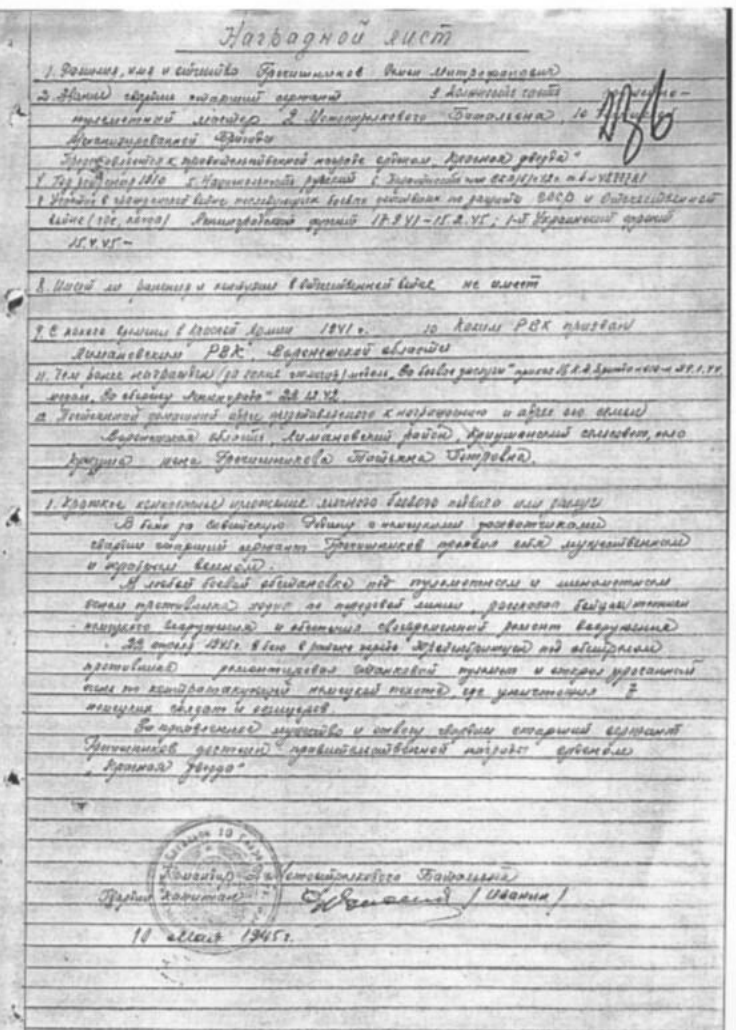 Наградной лист
1. Фамилия, имя и отчество Гречишников Семен Митрофанович
2. Звание гвардии старший сержант 3. Должность, часть
пулеметный мастер 2 Мотострелкового Батальона, 10
Механизированной Бригады
Представляется к правительственной награде орденом „Красная звезда"
4. Год рождения 1910 5. Национальность русский 6. Партийность
7. Участие в гражданской войне, последующих боевых действиях по защите СССР и Отечественной
войне (где, когда) Ленинградский фронт 17.9.41–15.2.45; 1-й Украинский фронт
15.4.45 –
8. Имеет ли ранения и контузии в отечественной войне не имеет
9. С какого времени в Красной Армии 1941 г. 10 Каким РВК призван
Лимановским РВК, Воронежской области
11. Чем ранее награжден (за какие отличия) медаль „За боевые заслуги" приказ
медаль „За оборону Ленинграда" 22.12.42
12. Постоянный домашний адрес представляемого к награждению и адрес его семьи
Воронежская область, Лимановский район, Криушанский сельсовет, село
Криуша жена Гречишникова Татьяна Петровна.
1. Краткое конкретное изложение личного боевого подвига или заслуг
В боях за Советскую Родину с немецкими захватчиками
гвардии старший сержант Гречишников проявил себя мужественным
и храбрым воином.
В любой боевой обстановке под пулеметным и минометным
огнем противника ходил по передовой линии, рассказал бойцам
немецкого вооружения и обеспечил своевременный ремонт вооружения
22 апреля 1945г. в бою в районе города под обстрелом
противника ремонтировал станковый пулемет и открыл ураганный
огонь по контратакующей немецкой пехоте, где уничтожил 7
немецких солдат и офицеров.
За проявленное мужество и отвагу гвардии старший сержант
Гречишников достоин правительственной награды орденом
„Красная звезда"
Командир 2 Мотострелкового Батальона
Гвардии капитан / Иванин /
10 мая 1945г.